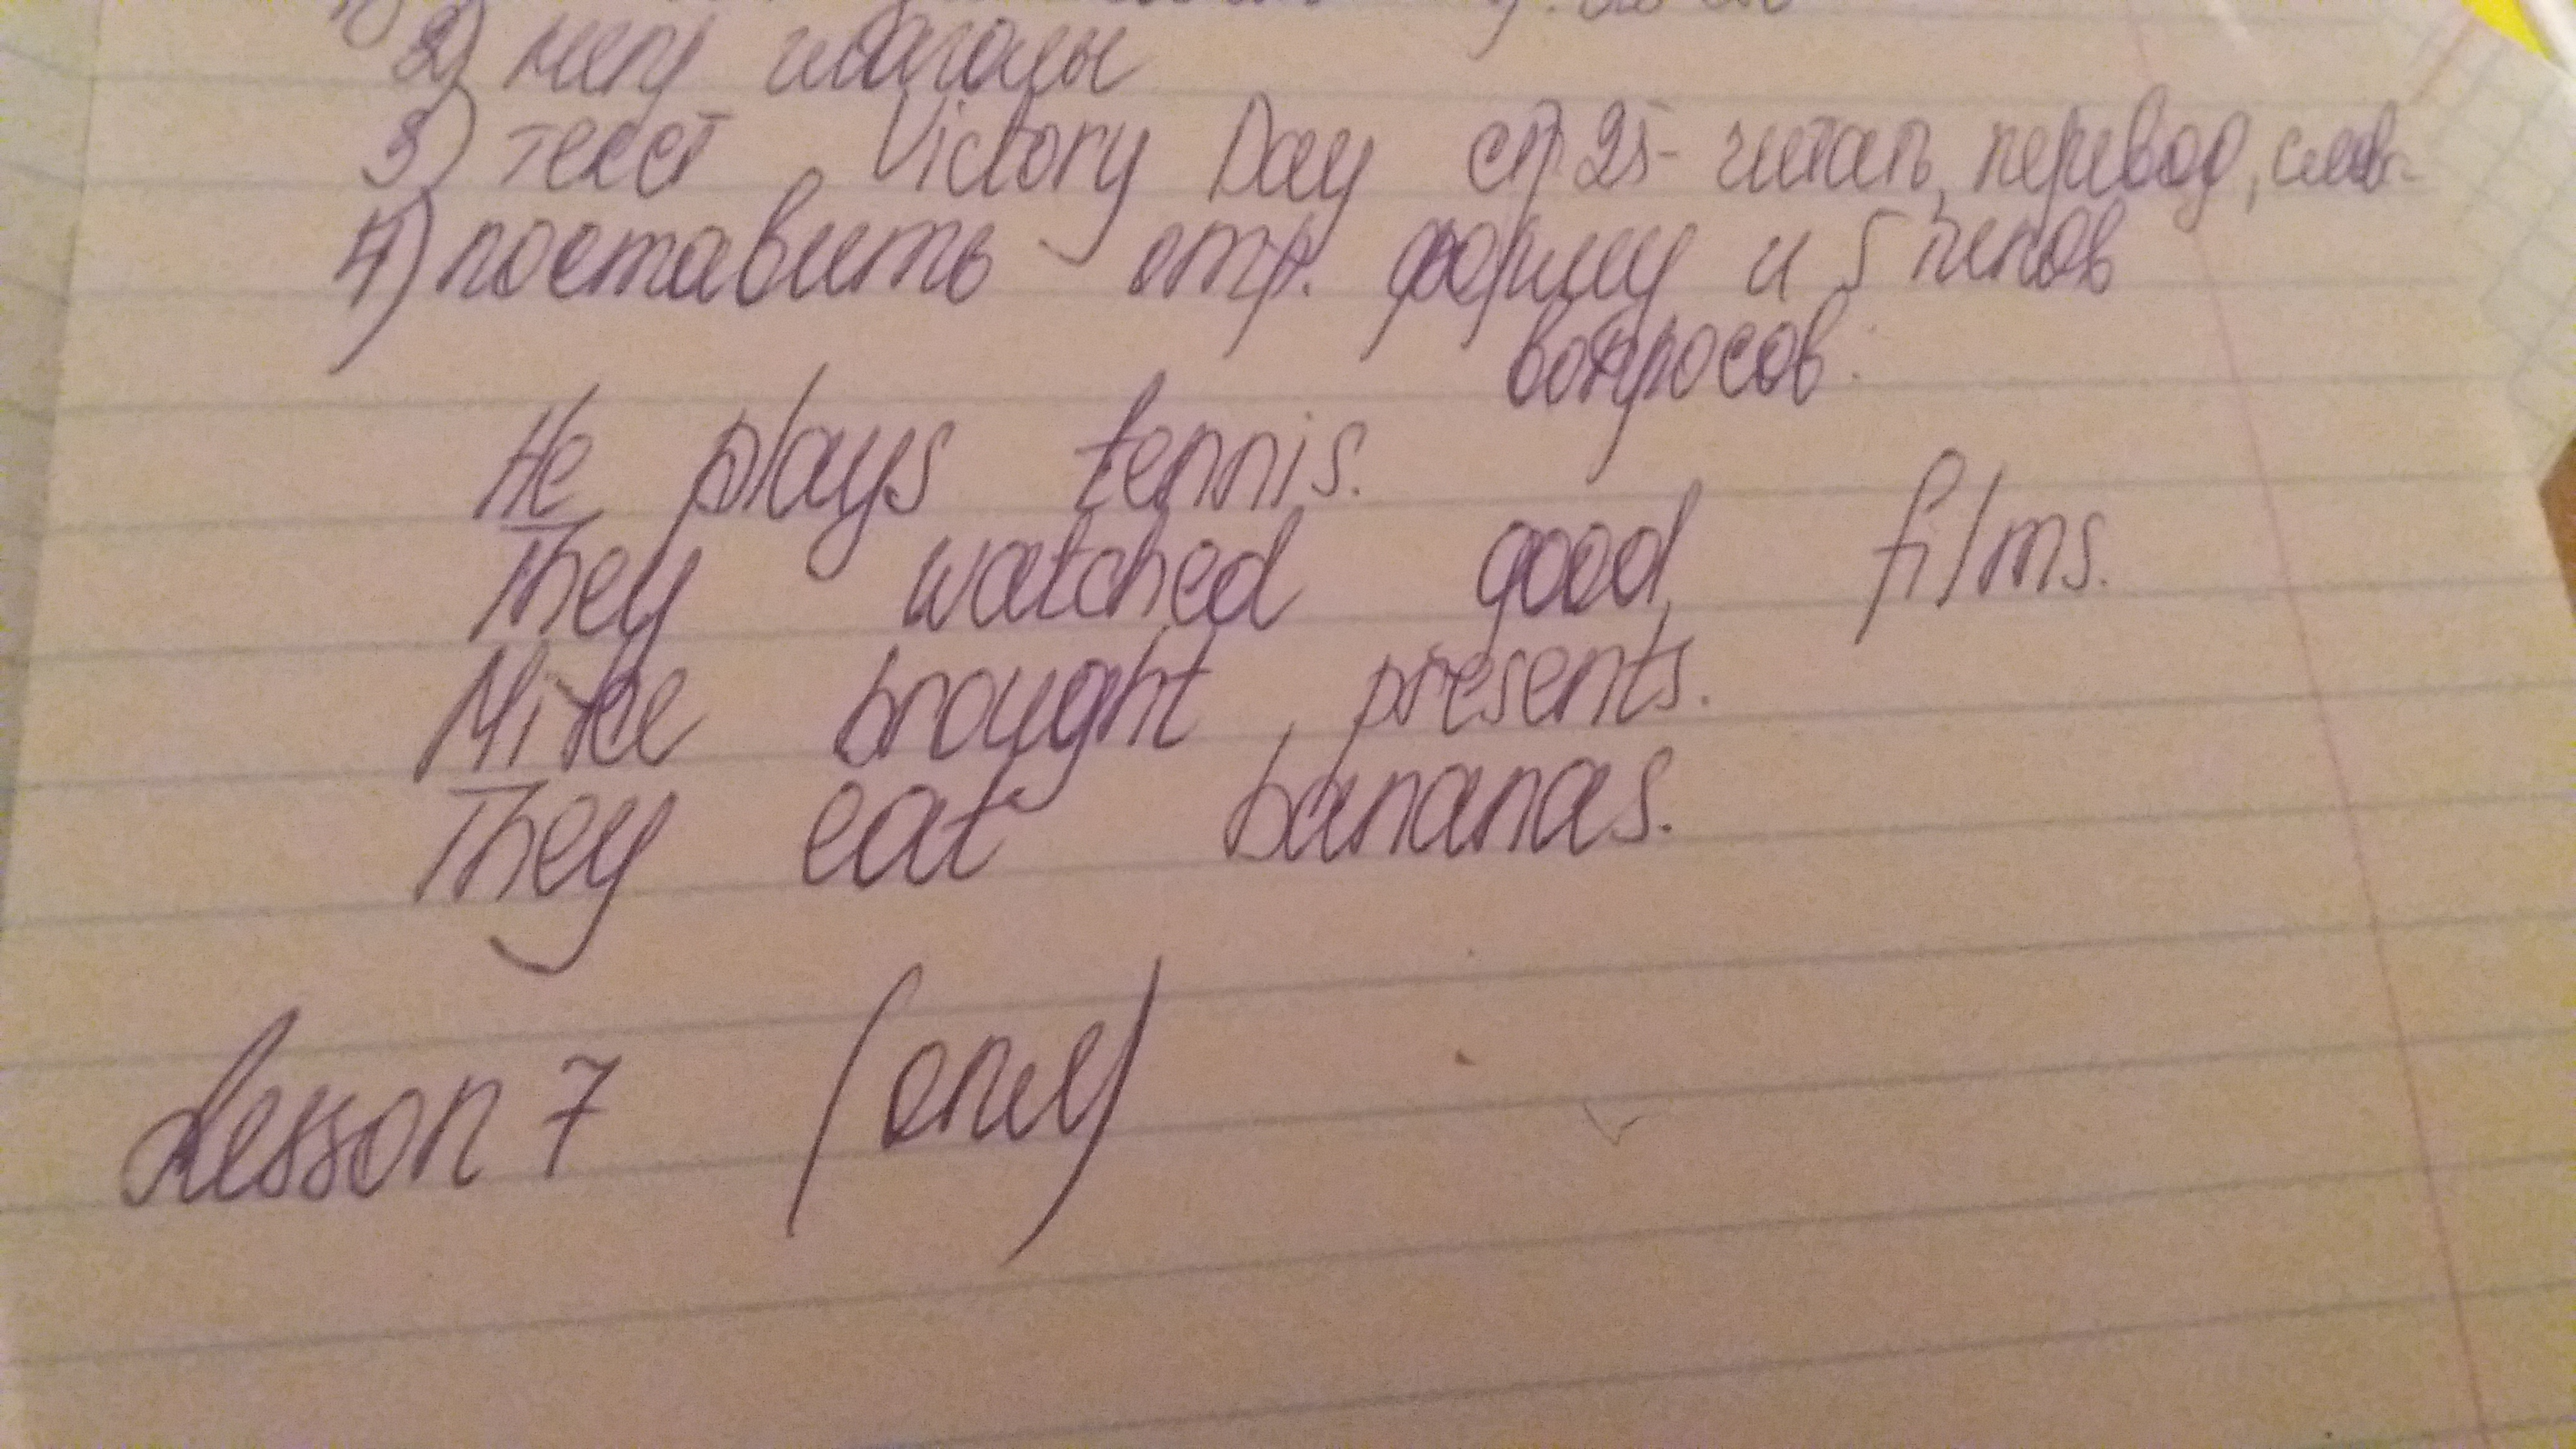 2) непр глаголы
3) текст Victory Day ст 25 - читать, перевод, слов-
4) поставить отр. форму и 5 типов
вопросов:
He plays tennis.
They watched good films.
Mike brought presents.
They eat bananas.
Lesson 7